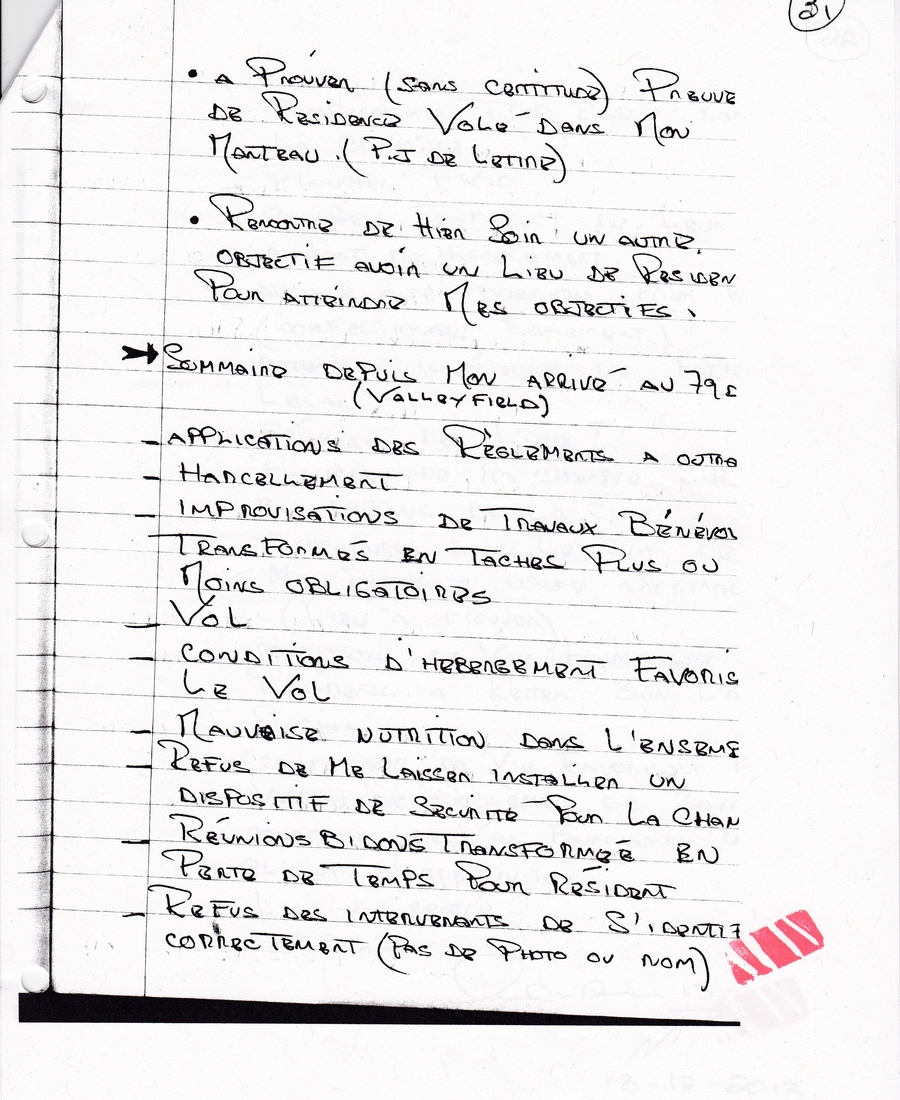 21
• A PROUVER (SANS CERTITUDE) PREUVE
DE RESIDENCE VOLÉ DANS MON
MANTEAU. (P.J DE LETTRE)
• RENCONTRE DE HIER SOIR UN AUTRE
OBJECTIF AVOIR UN LIEU DE RESIDEN
POUR ATTEINDRE MES OBJECTIFS.
SOMMAIRE DEPUIS MON ARRIVÉ AU 79
(VALLEYFIELD)
- APPLICATIONS DES RÈGLEMENTS A OUTRE
- HARCELLEMENT
- IMPROVISATIONS DE TRAVAUX BÉNÉVOL
TRANSFORMÉS EN TACHES PLUS OU
MOINS OBLIGATOIRES
- VOL
- CONDITIONS D'HEBERGEMENT FAVORIS
LE VOL
- MAUVAISE NUTRITION DANS L'ENSEMB
- REFUS DE ME LAISSER INSTALLER UN
DISPOSITIF DE SECURITÉ POUR LA CHAM
- RÉUNIONS BIDONS TRANSFORMÉE EN
PERTE DE TEMPS POUR RÉSIDENT
- REFUS DES INTERVENANTS DE S'IDENTIF
CORRECTEMENT (PAS DE PHOTO OU NOM)